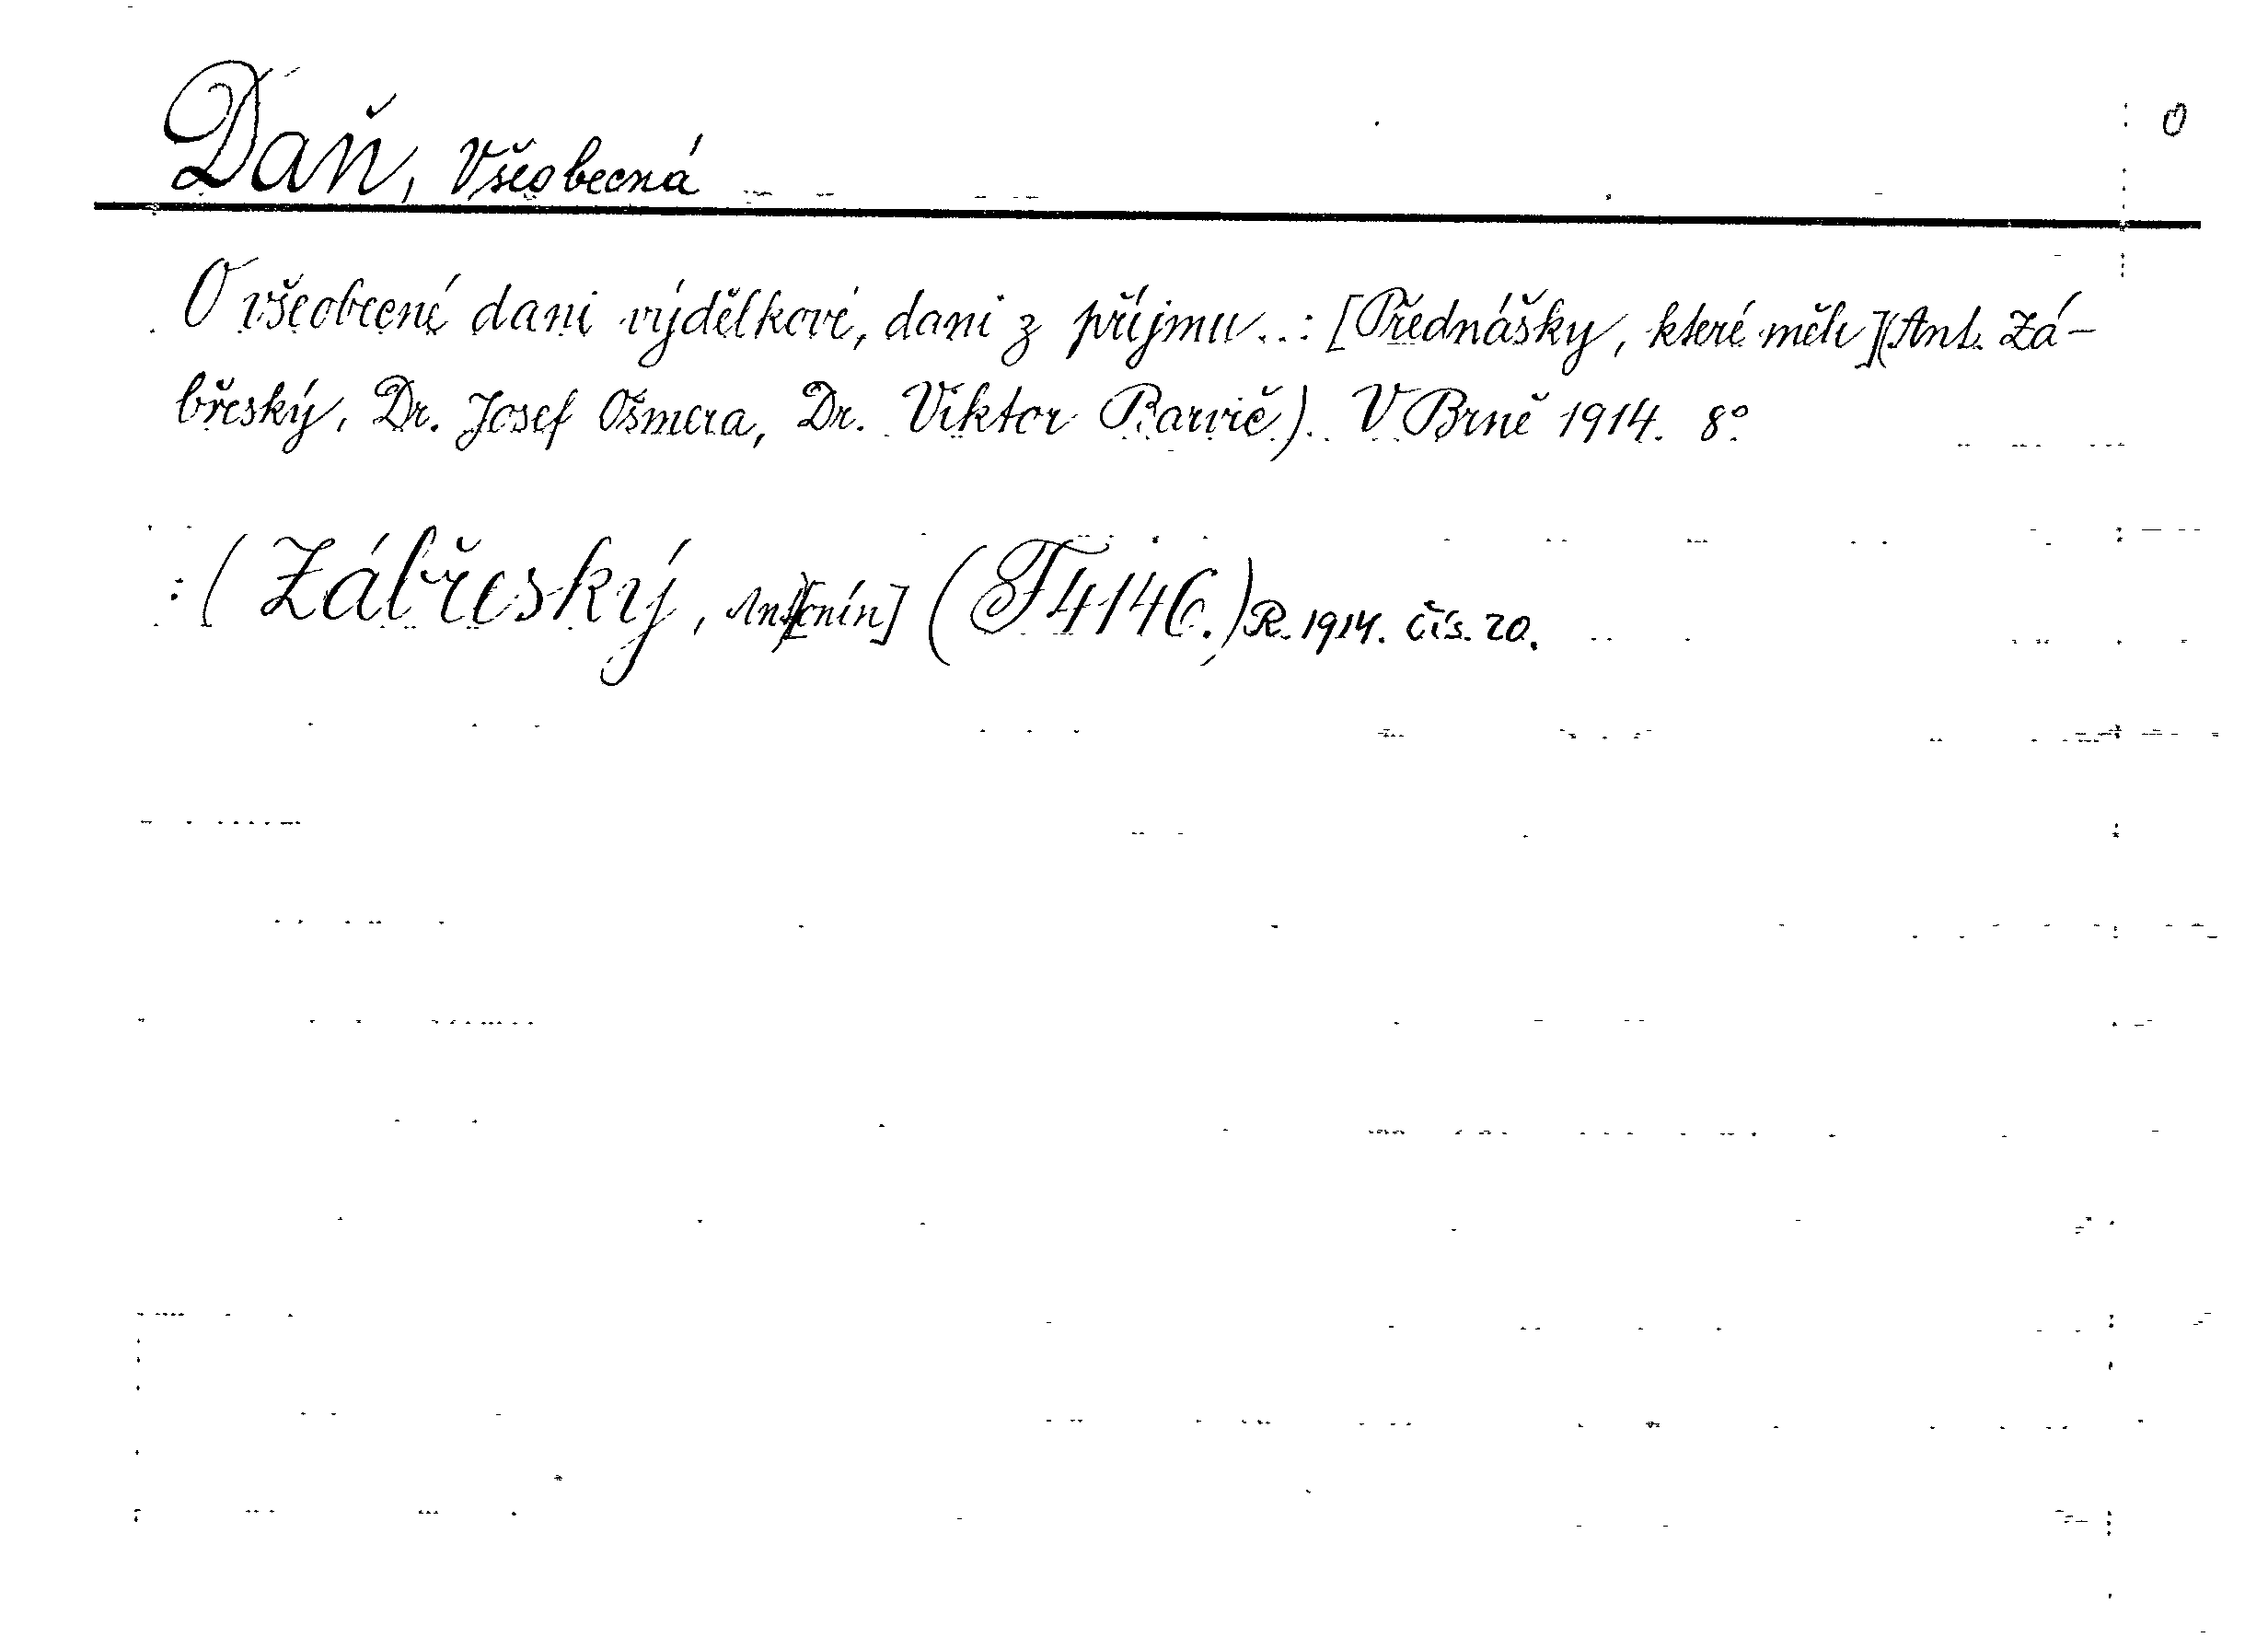 Daň, Všeobecná
O
O všeobecné dani výdělkové, dani z příjmu..: [Přednášky, které měli](Ant. Zá-
břeský, Dr. Josef Ošmera, Dr. Viktor Barvič). V Brně 1914. 8°
:( Zábřeský, Ant)[onín] (F4146.) R. 1914. čís. 20.